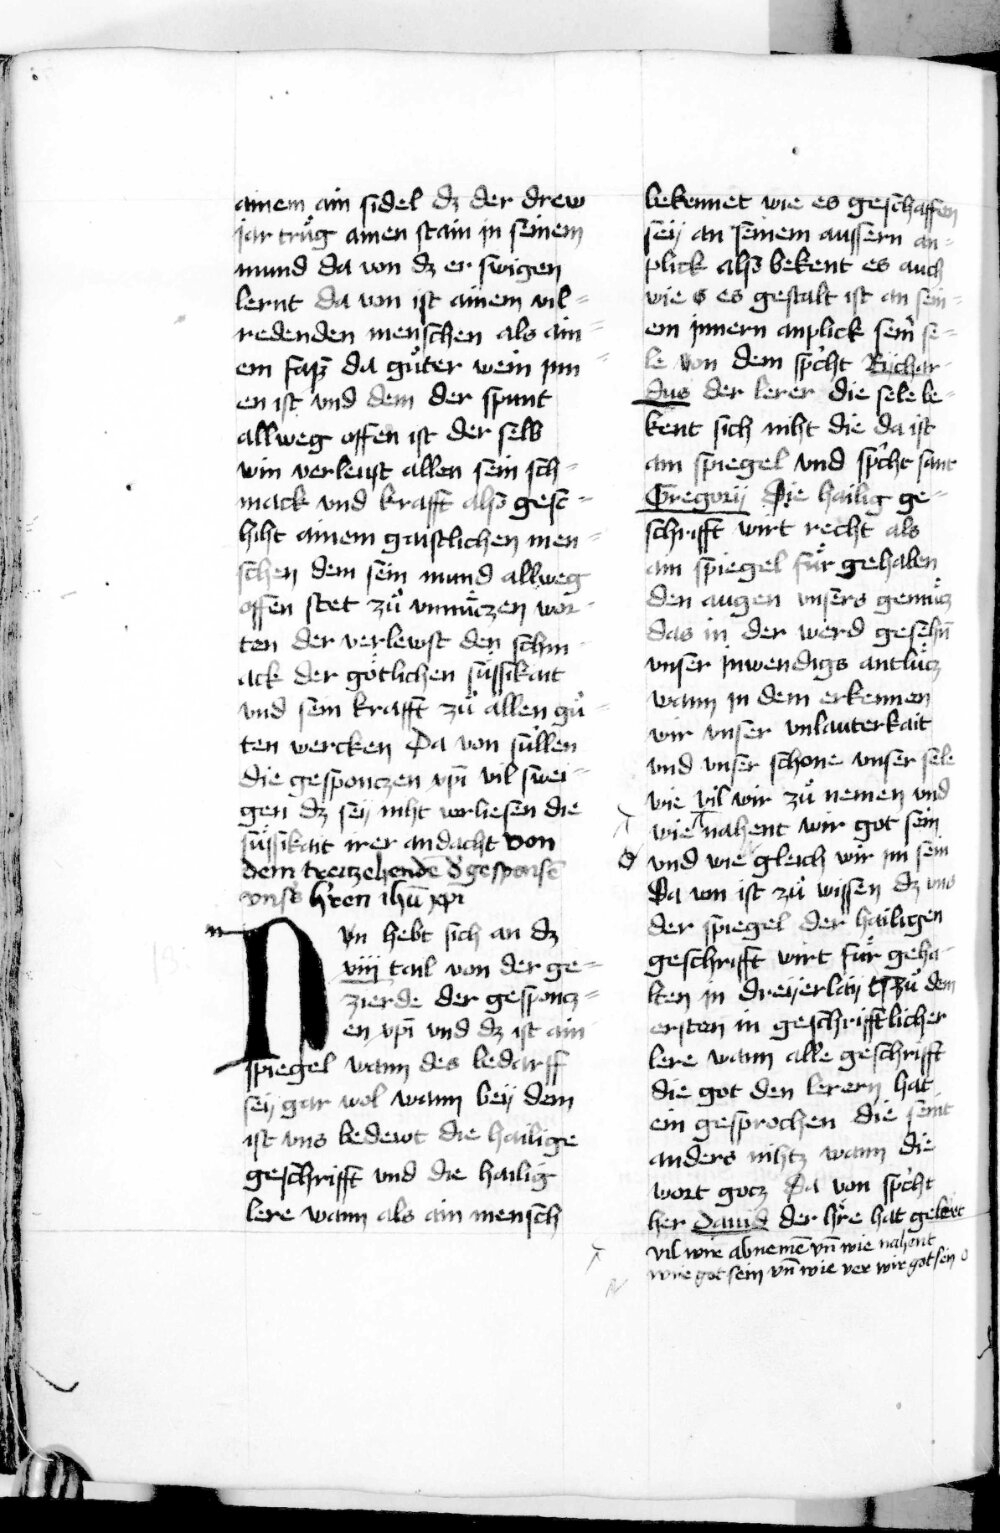 ainem ain sidel dz der drew
jar trůg ainen stain in seinem
mund da von dz er swigen
lernt da von ist ainem vil=
redenden menschen als ain=
em fasz da gůter wein inn=
en ist vnd dem der spunt
allweg offen ist der selb
win verleust allen sein sch=
mack vnd krafft also gesc=
hiht ainem gaistlichen men=
schen dem sein mund allweg
offen stet zů vnnüczen wor=
ten der verlewst den schm=
ack der götlichen süssikait
vnd sein krafft zů allen gů=
ten wercken Da von süllen
die gesponczen xp̄i vil swei=
gen dz seÿ niht verliesen die
süssikait irer andacht von
dem treitzehendē d' gesponsē
vnsers h'ren ih̄u xpi
Nvn hebt sich an dz
xiij tail von der ge=
zierde der gesponcz=
en xp̄i vnd dz ist ain
spiegel wann des bedarff
seÿ gar wol wann beÿ dem
ist vns bedewt die hailige
geschrifft vnd die hailig
lere wann als ain mensch
bekennet wie es geschaffen
seÿ an seinem aussern an=
plick also bekent es auch
wie es gestalt ist an sein=
em innern anplick sein' se=
le von dem sp'cht Richar=
dus der lerer die sele be=
kent sich niht die da ist
am spiegel vnd sp'cht sant
Gregorÿ Die hailig ge=
schrifft wirt recht als
ain spiegel für gehaben
den augen vnsers gemücz
das in der werd gesehn̄
vnser inwendigs antlücz
wann in dem erkennen
wir vnser vnlauterkait
vnd vnser schone vnser sele
wie vil wir zů nemen vnd
wie nahent wir got sein
vnd wie gleich wir im sein
Da von ist zů wissen dz vns
der spiegel der hailigen
geschrifft wirt für geha=
lten in dreÿerlaÿ zů dem
ersten in geschrifftlicher
lere wann alle geschrifft
die got den lerern hat
ein gesprochen die seint
anders nihtz wann die
wort gocz Da von sp'cht
her Dauid der h're hat gelert
vil wir abnemē vn̄ wie nahent
wir got sein vn̄ wie ver wir got sein